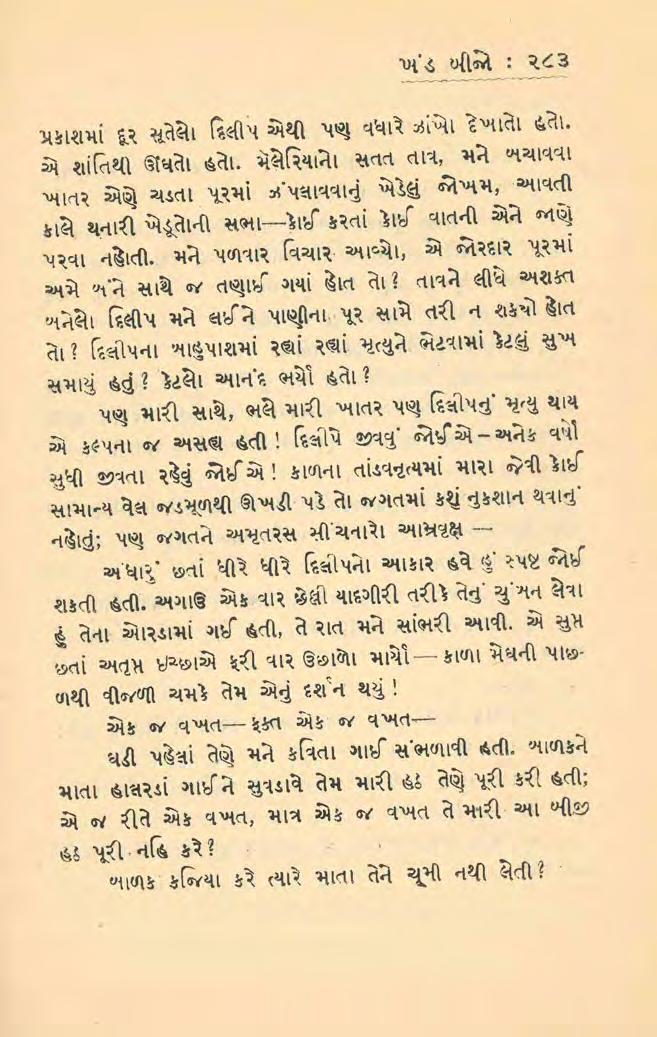 ખંડ બીજો : ૨૮૩
પ્રકાશમાં દૂર સૂતેલો દિલીપ એથી પણ વધારે ઝાંખો દેખાતો હતો.
એ શાંતિથી ઊંઘતો હતો. મૅલેરિયાનો સતત તાવ, મને બચાવવા
ખાતર એણે ચડતા પૂરમાં ઝંપલાવવાનું ખેડેલું જોખમ, આવતી
કાલે થનારી ખેડૂતોની સભા—કોઈ કરતાં કોઈ વાતની એને જાણે
પરવા નહોતી. મને પળવાર વિચાર આવ્યો, એ જોરદાર પૂરમાં
અમે બંને સાથે જ તણાઈ ગયાં હોત તો? તાવને લીધે અશક્ત
બનેલો દિલીપ મને લઈને પાણીના પૂર સામે તરી ન શક્યો હોત
તો? દિલીપના બાહુપાશમાં રહ્યાં રહ્યાં મૃત્યુને ભેટવામાં કેટલું સુખ
સમાયું હતું? કેટલો આનંદ ભર્યો હતો?
પણ મારી સાથે, ભલે મારી ખાતર પણ દિલીપનું મૃત્યુ થાય
એ કલ્પના જ અસહ્ય હતી! દિલીપે જીવવું જોઈએ – અનેક વર્ષો
સુધી જીવતા રહેવું જોઈએ! કાળના તાંડવનૃત્યમાં મારા જેવી કોઈ
સામાન્ય વેલ જડમૂળથી ઊખડી પડે તો જગતમાં કશું નુકશાન થવાનું
નહોતું; પણ જગતને અમૃતરસ સીંચનારો આમ્રવૃક્ષ —
અંધારું છતાં ધીરે ધીરે દિલીપનો આકાર હવે હું સ્પષ્ટ જોઈ
શકતી હતી. અગાઉ એક વાર છેલ્લી યાદગીરી તરીકે તેનું ચુંબન લેવા
હું તેના ઓરડામાં ગઈ હતી, તે રાત મને સાંભરી આવી. એ સુપ્ત
છતાં અતૃપ્ત ઇચ્છાએ ફરી વાર ઉછાળો માર્યો — કાળા મેઘની પાછ-
ળથી વીજળી ચમકે તેમ એનું દર્શન થયું!
એક જ વખત— ફક્ત એક જ વખત—
ઘડી પહેલાં તેણે મને કવિતા ગાઈ સંભળાવી હતી. બાળકને
માતા હાલરડાં ગાઈને સુવડાવે તેમ મારી હઠ તેણે પૂરી કરી હતી;
એ જ રીતે એક વખત, માત્ર એક જ વખત તે મારી આ બીજી
હઠ પૂરી નહિ કરે?
બાળક કજિયા કરે ત્યારે માતા તેને ચૂમી નથી લેતી?